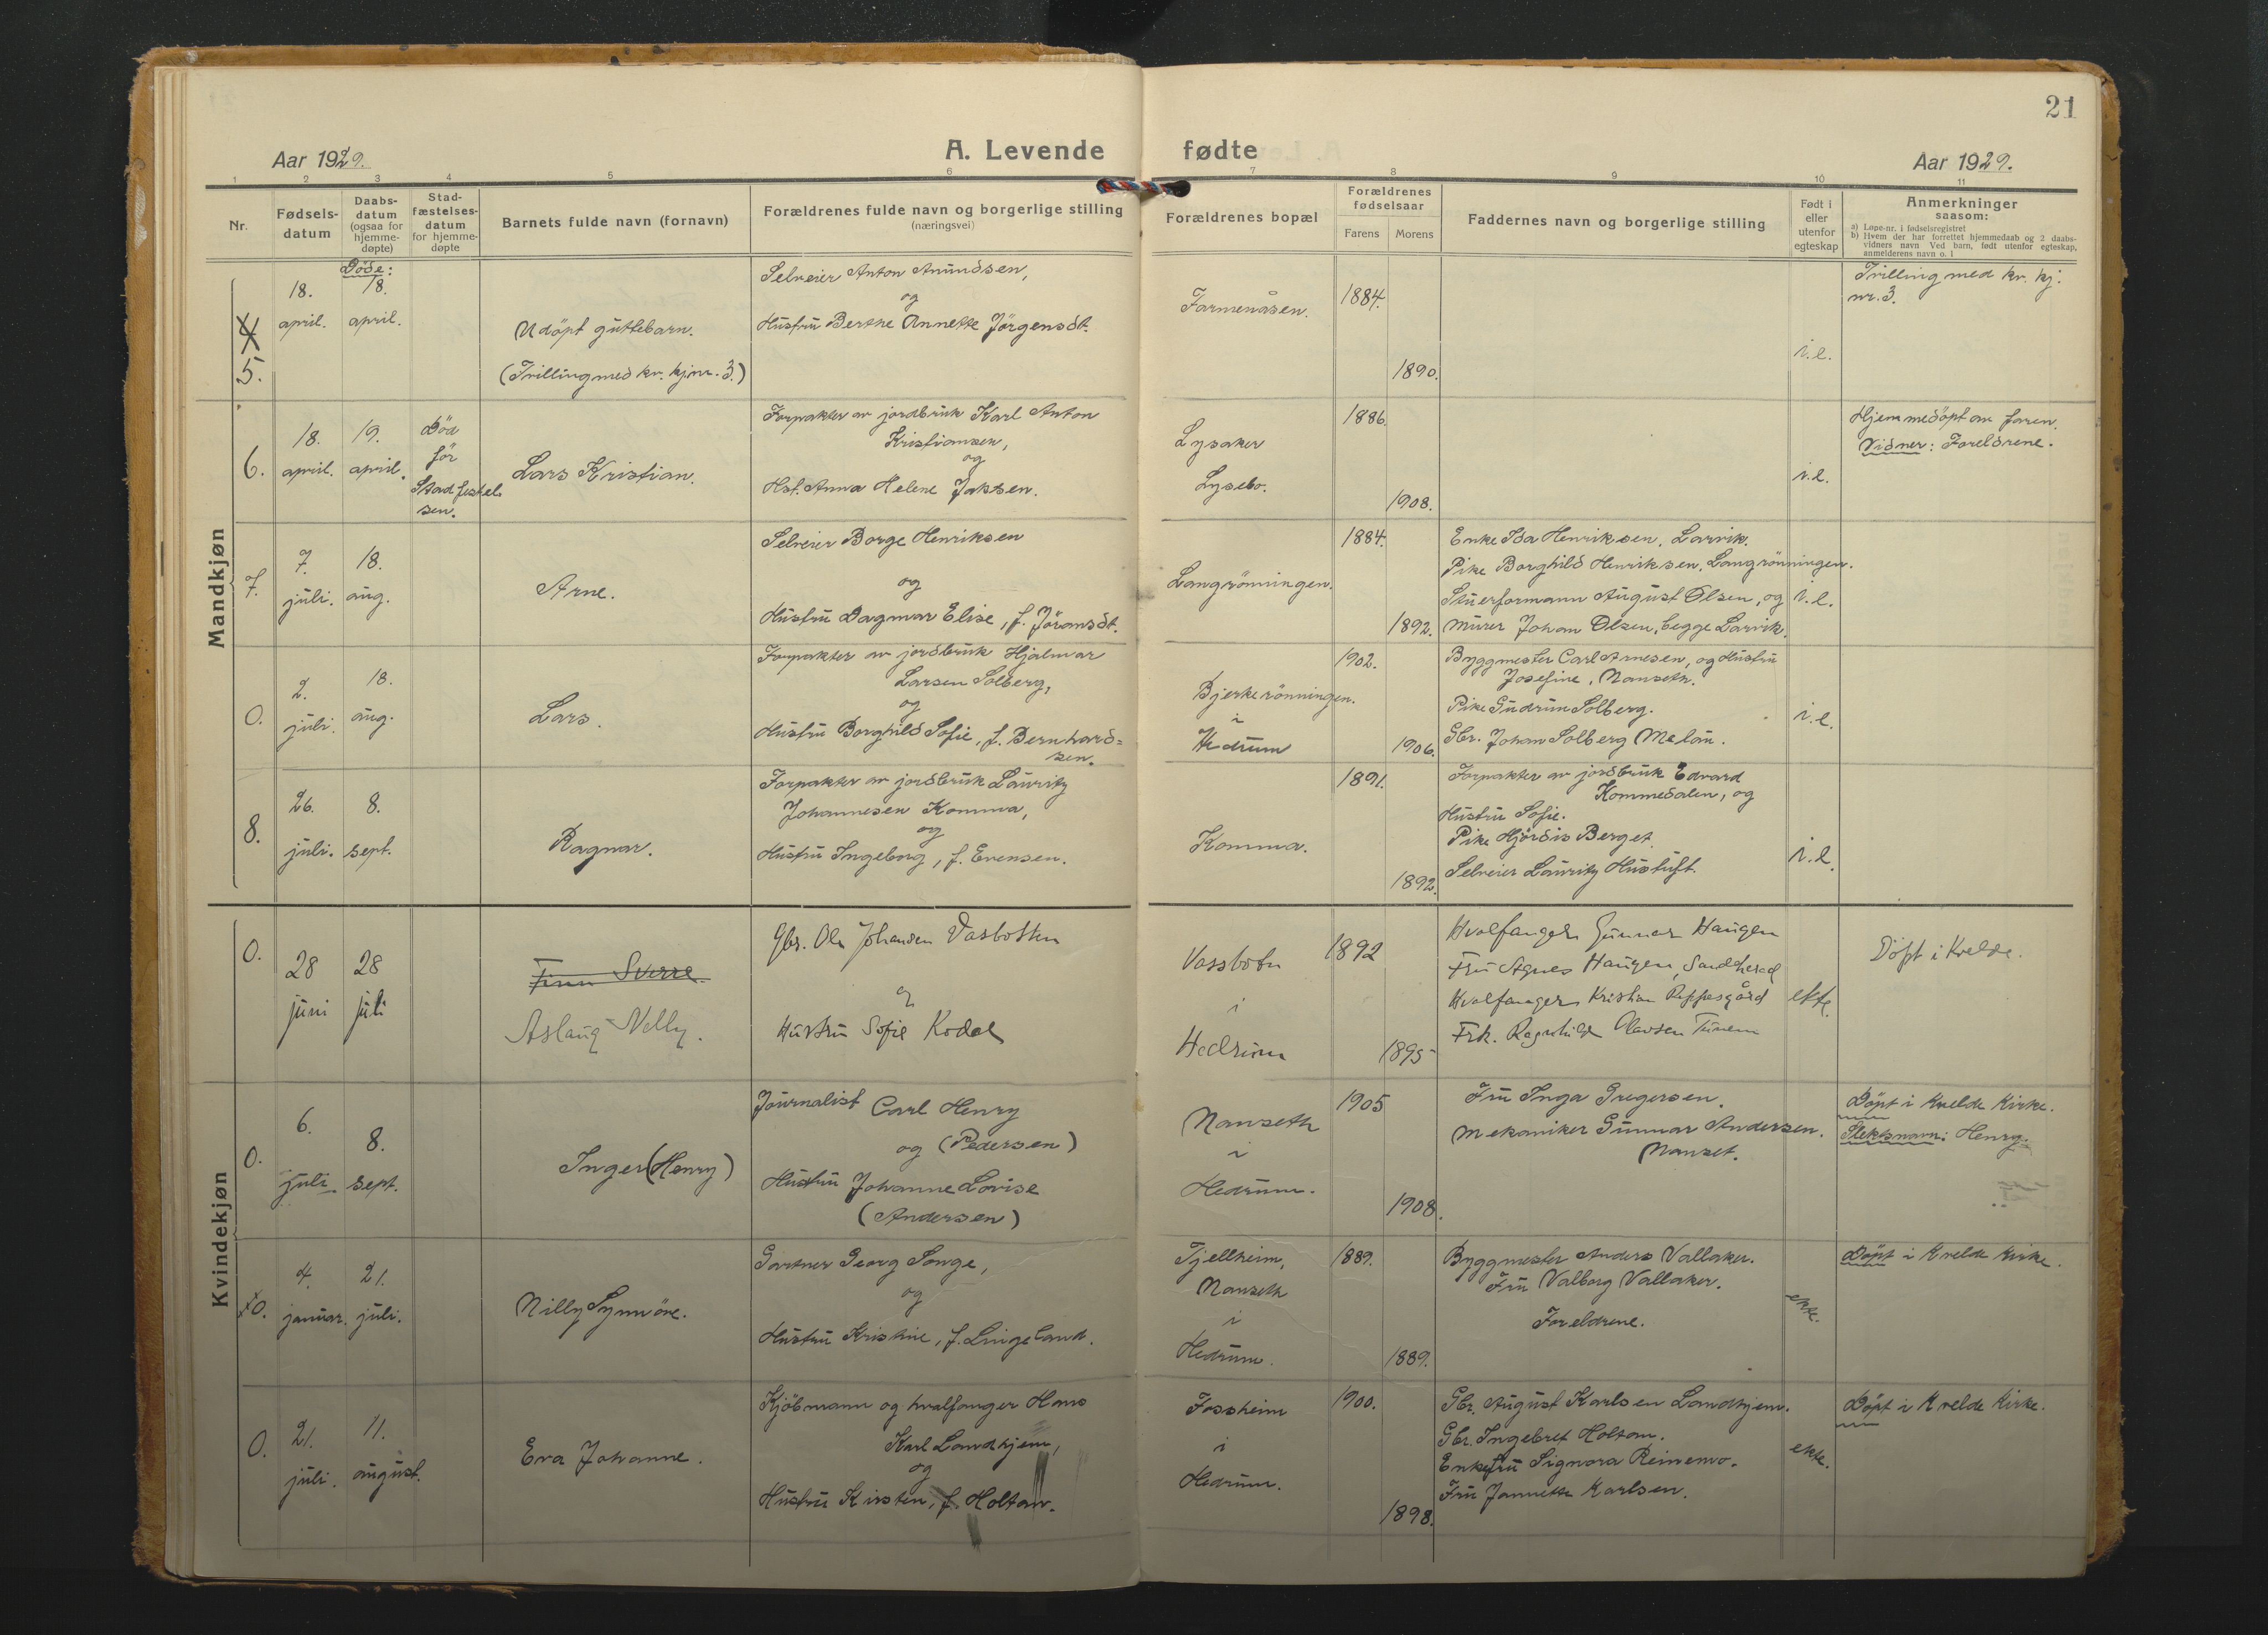 21
Aar 1929.
A. Levende
fødte
Aar 1929.
1 2 3 4 5 6 7 8 9 10 11
Nr.
Fødsels-
datum
Daabs-
datum
(ogsaa for
hjemme-
døpte)
Stad-
fæstelses-
datum
for hjemme-
døpte
Barnets fulde navn (fornavn)
Forældrenes fulde navn og borgerlige stilling
(næringsvei)
Forældrenes bopæl
Forældrenes
fødselsaar
Farens Morens
Faddernes navn og borgerlige stilling
Født i
eller
utenfor
egteskap
Anmerkninger
saasom:
a) Løpe-nr. i fødselsregistret
b) Hvem der har forrettet hjemmedaab og 2 daabs-
vidners navn Ved barn, født utenfor egteskap,
anmelderens navn o. l
Mandkjøn
4
5.
18.
april.
Döde:
18.
april.
Udöpt guttebarn.
(Trilling med kr. kj nr. 3.)
Selveier Anton Amundsen,
og
Hustru Berthe Annette Jörgensdt.
Farmenåsen.
1884.
1890.
i.e.
Trilling med kr. kj.
nr. 3.
6.
18.
april.
19.
april.
Död
för
Stadfestel
sen.
Lars Kristian.
Forpakter av jordbruk Karl Anton
Kristiansen,
og
Hst. Anna Helene Jaksen.
Lysaker
Lysebo.
1886.
1908.
i.e.
Hjemmedöpt av faren.
Vidner: Foreldrene.
7.
7.
juli.
18.
aug.
Arne.
Selveier Borge Henriksen
og
Hustru Dagmar Elise, f. Jöransdt.
Langrönningen.
1884.
1892.
Enke Ida Henriksen, Larvik.
Pike Borghild Henriksen, Langrönningen.
Stuerformann August Olsen, og
Murer Johan Olsen, begge Larvik.
i.e.
0.
2.
juli.
18.
aug.
Lars.
Forpakter av jordbruk Hjalmar
Larsen Solberg,
og
Hustru Borghild Sofie, f. Bernhard=
sen.
Bjerkerönningen.
i
Hedrum
1902.
1906.
Byggmester Carl Arnesen, og Hustru
Josefine, Nanseth.
Pike Gudrun Solberg.
Gbr. Johan Solberg Melau.
i.e.
8.
26.
juli.
8.
sept.
Ragnar.
Forpakter av jordbruk Lauritz
Johannesen Komma,
og
Hustru Ingeborg, f. Evensen.
Komma.
1891.
1892.
Forpakter av jordbruk Edvard
Kommedalen, og
Hustru Sofie.
Pike Hjördis Berget.
Selveier Lauritz Hustuft.
i.e.
Kvindekjøn
0.
28
juni
28
juli
Finn Sverre
Aslaug Nelly.
Gbr. Ole Johansen Vasbotten
og
Hustru Sofie Kodal
Vassbotn
i
Hedrum
1892
1895
Hvalfanger Gunnar Haugen
Fru Agnes Haugen, Sandherad
Hvalfanger Kristian Reppesgård
Frk. Ragnhild Olavsen
ekte.
Döpt i Kvelde.
0.
6.
juli
8.
sept.
Inger (Henry)
Journalist Carl Henry
og (Pedersen)
Hustru Johanne Lovise
(Andersen)
Nanseth
i
Hedrum.
1905
1908.
Fru Inga Gregersen.
Mekaniker Gunnar Andersen.
Nanset.
Döpt i Kvelde Kirke.
Slektsnavn: Henry.
0.
4.
januar.
21.
juli.
Nilly Synnöve.
Gartner Georg Songe,
og
Hustru Kristine, f. Lingeland.
Fjellheim,
Nanseth
i
Hedrum.
1889.
1889.
Byggmester Anders Vallaker.
Fru Valborg Vallaker.
Foreldrene.
ekte.
Döpt i Kvelde kirke.
0.
21.
juli.
11.
august.
Eva Johanne.
Kjöbmann og hvalfanger Hans
Karl Landhjem,
og
Hustru Kirsten, f. Holtan.
Fossheim
i
Hedrum.
1900.
1898.
Gbr. August Karlsen Landhjem.
Gbr. Ingebret Holtan.
Enkefru Signora Reinemo.
Fru Jannette Karlsen.
ekte.
Döpt i Kvelde Kirke.